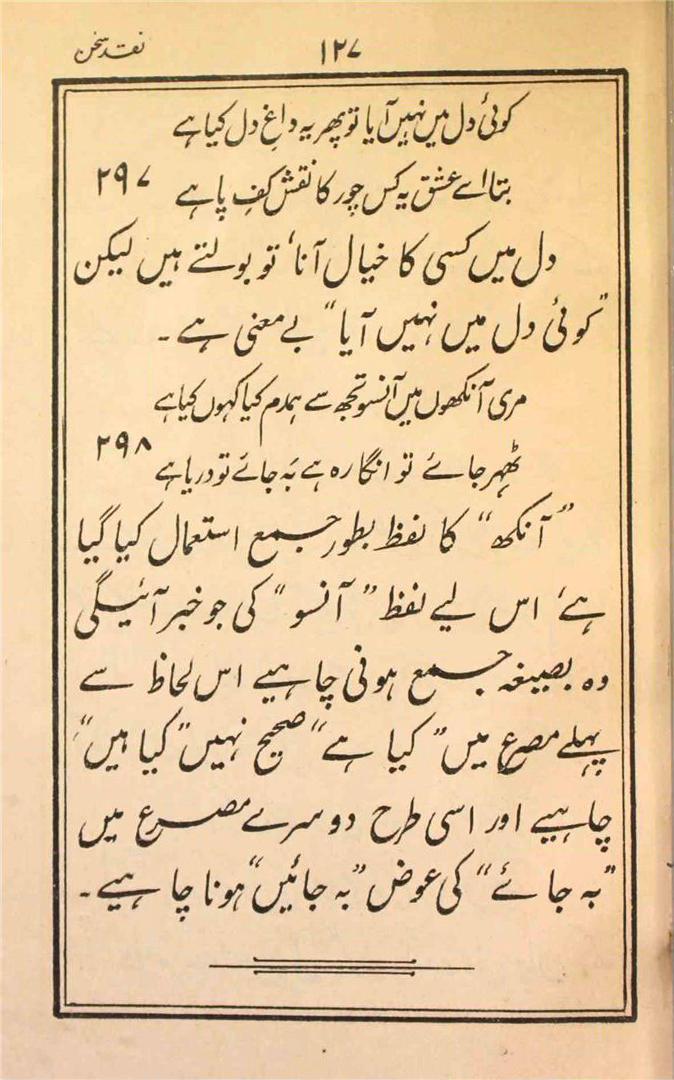 نقد سخن ۱۲۷
کوئی دل میں نہیں آیا تو پھر یہ داغِ دل کیا ہے
بتا اے عشق یہ کس چور کا نقش کفِ پا ہے ۲۹۷
دل میں کسی کا خیال آنا، تو بولتے ہیں لیکن
"کوئی دل میں نہیں آیا" بے معنی ہے۔
مری آنکھوں میں آنسو تجھ سے ہمدم کیا کہوں کیا ہے
ٹھہر جائے تو انگارہ ہے بَہ جائے تو دریا ہے ۲۹۸
"آنکھ" کا لفظ بطور جمع استعمال کیا گیا
ہے، اس لیے لفظ "آنسو" کی جو خبر آئیگی
وہ بصیغہ جمع ہونی چاہیے اس لحاظ سے
پہلے مصرع میں "کیا ہے" صحیح نہیں "کیا ہیں"
چاہیے اور اسی طرح دوسرے مصرع میں
"بہ جائے" کی عوض "بہ جائیں" ہونا چاہیے۔